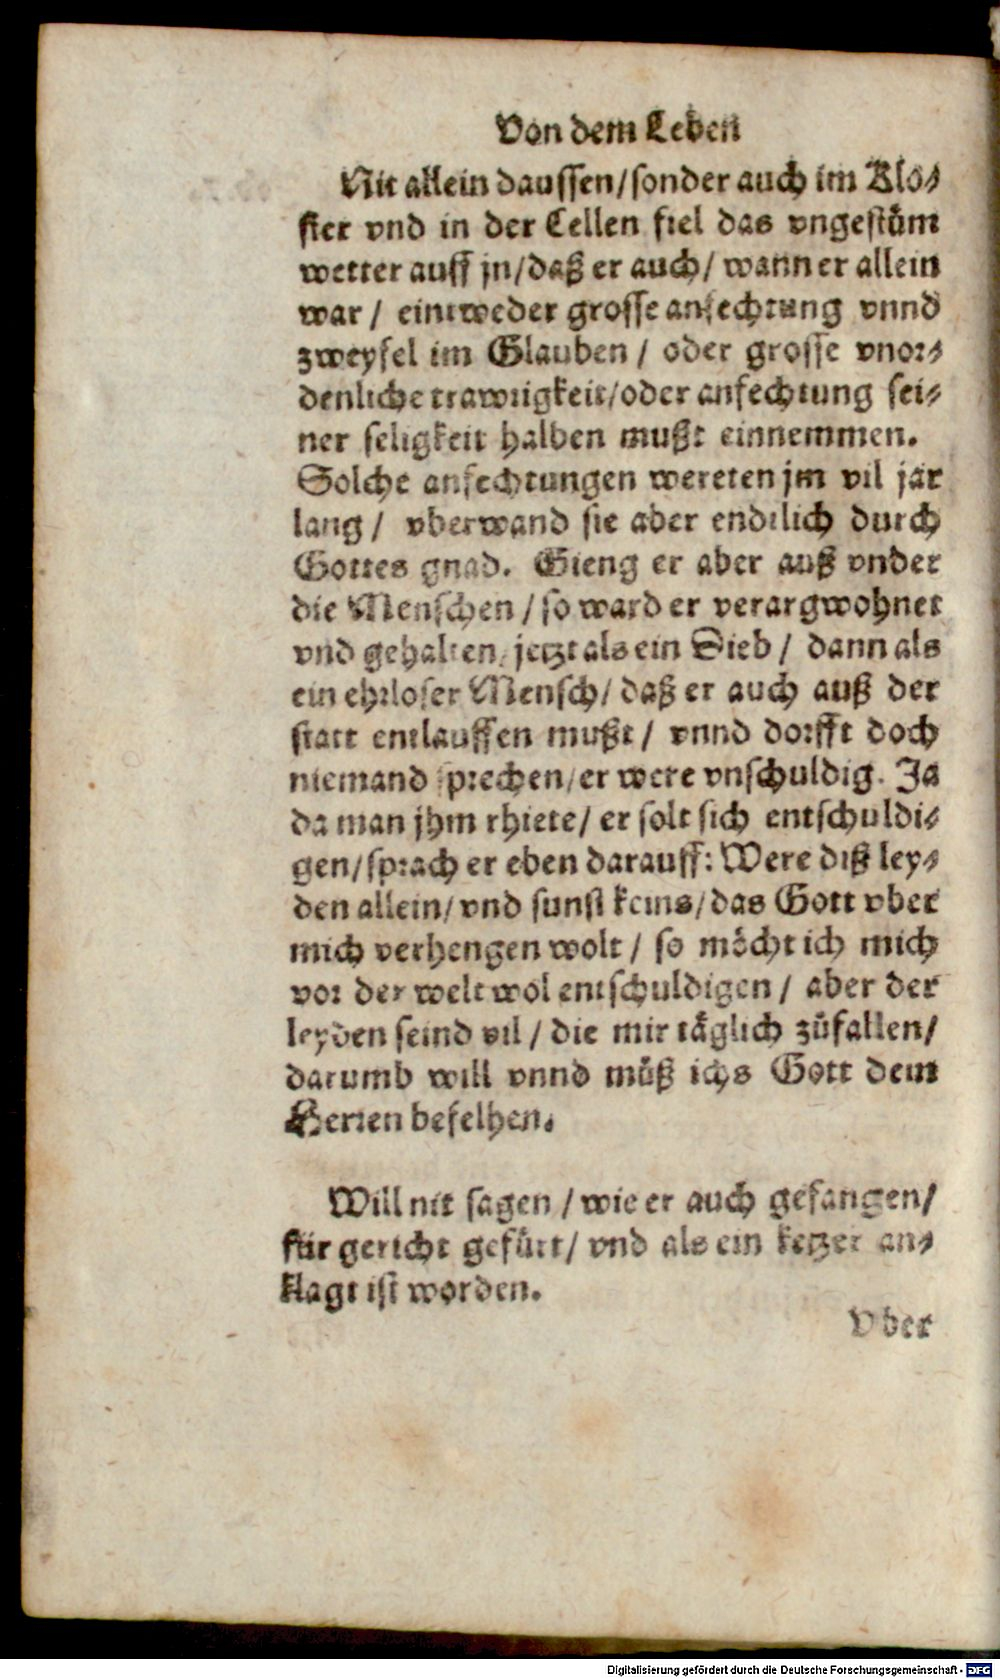 Von dem Leben
Nit allein daussen/sonder auch im Klo⸗
ster vnd in der Cellen fiel das vngestüm
wetter auff jn/daß er auch/ wann er allein
war / eintweder grosse anfechtung vnnd
zweyfel im Glauben / oder grosse vnor⸗
denliche trawrigkeit/oder anfechtung sei⸗
ner seligkeit halben mußt einnemmen.
Solche anfechtungen wereten jm vil jar
lang / vberwand sie aber endtlich durch
Gottes gnad. Gieng er aber auß vnder
die Menschen / so ward er verargwohnet
vnd gehalten/ jetzt als ein Dieb / dann als
ein ehrloser Mensch/ daß er auch auß der
statt entlauffen mußt / vnnd dorfft doch
niemand sprechen/er were vnschuldig. Ja
da man jhm rhiete/ er solt sich entschuldi⸗
gen/sprach er eben darauff: Were diß ley⸗
den allein/ vnd sunst keins/das Gott vber
mich verhengen wolt / so möcht ich mich
vor der welt wol entschuldigen / aber der
leyden seind vil / die mir täglich züfallen/
darumb will vnnd müß ichs Gott dem
Herren befelhen.
Will nit sagen / wie er auch gefangen/
für gericht gefürt/ vnd als ein ketzer an⸗
klagt ist worden.
Vber
Digitalisierung gefördert durch die Deutsche Forschungsgemeinschaft - DFG